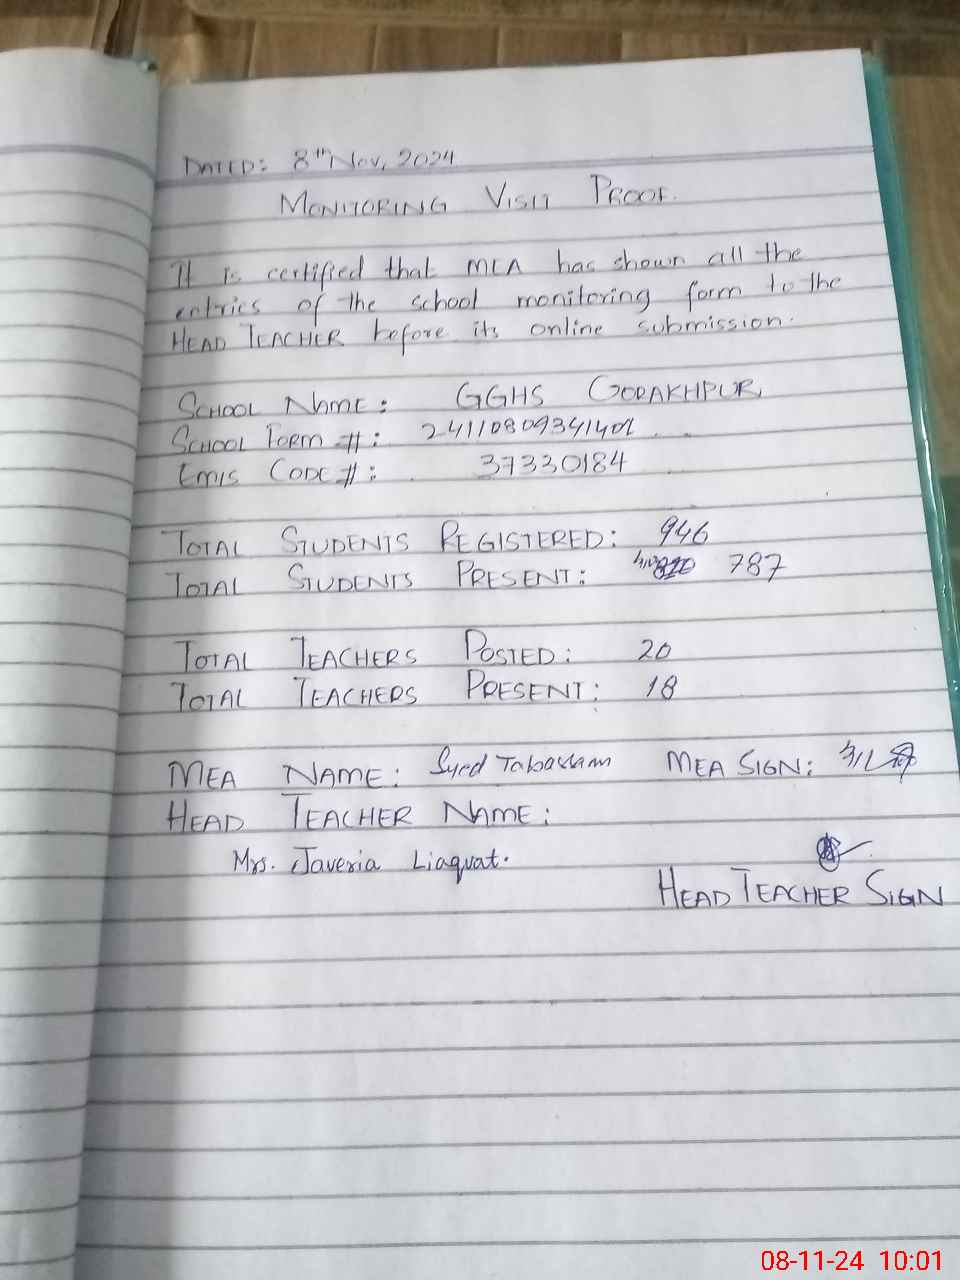 DATED: 8th Nov, 2024
MONITORING VISIT PROOF.
It is certified that MEA has shown all the
entries of the school monitoring form to the
HEAD TEACHER before its online submission.
SCHOOL NAME: GGHS GORAKHPUR
SCHOOL FORM #: 24110809341401
EMIS CODE #: 37330184
TOTAL STUDENTS REGISTERED: 946
TOTAL STUDENTS PRESENT: 787
TOTAL TEACHERS POSTED: 20
TOTAL TEACHERS PRESENT: 18
MEA NAME: Syed Tabassam MEA SIGN:
HEAD TEACHER NAME:
Mrs. Javeria Liaquat.
HEAD TEACHER SIGN
08-11-24 10:01